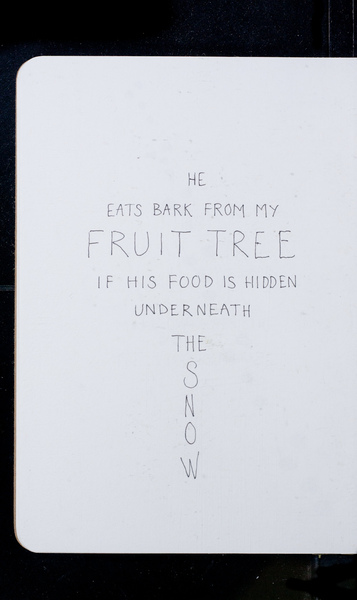 HE
EATS BARK FROM MY
FRUIT TREE
IF HIS FOOD IS HIDDEN
UNDERNEATH
THE
S
N
O
W